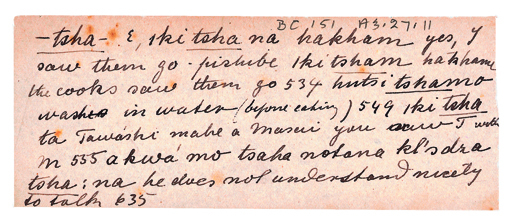 BC 151 A3.27.11
-tsha- E, iki tsha na hakham yes, I
saw them go - pishibe iki tsham hakhame
the cooks saw them go 534 hutsi tshamo
washes in water (before eating) 549 iki tsha
ta Tawashi mabe a masui you saw I with
m 555 akwá mo tsaha notana kl's dra
tsha: na he does not understand nicely
to talk 635